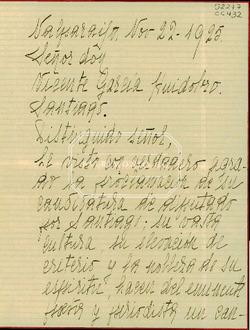 02217
CC432
Valparaíso, Nov-22-1925.
Señor don
Vicente García Huidobro.
Santiago.
Distinguido Señor,
he visto con verdadero agra-
do la proclamación de su
candidatura de diputado
por Santiago; su vasta
cultura, su elevación de
criterio y la nobleza de su
espíritu, hacen del eminente
poeta y periodista un can-